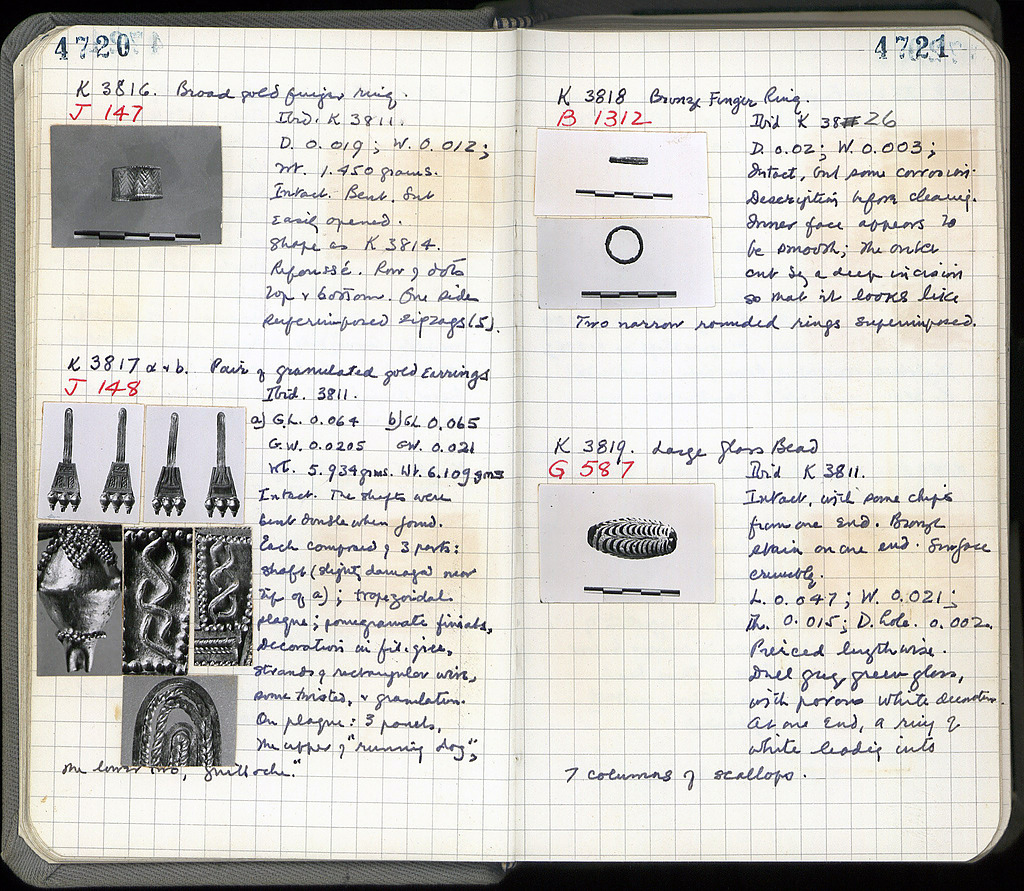 4720
K 3816. Broad gold finger ring.
J 147
Ibid. K 3811.
D. 0.019; W. 0.012;
Wt. 1.450 grams.
Intact. Bent but
easily opened.
Shape as K 3814.
Repoussé. Row of dots
top & bottom. One side
superimposed zigzags (5).
K 3817 a & b. Pair of granulated gold Earrings
J 148
Ibid. 3811.
a) G.L. 0.064 b) GL 0.065
G.W. 0.0205 GW. 0.021
Wt. 5.934 gms. Wt. 6.109 gms
Intact. The shafts were
bent double when found.
Each composed of 3 parts:
shaft (slightly damaged near
tip of a); trapezoidal
plaque; pomegranate finials,
Decoration in filigree,
strands of rectangular wire,
some twisted, & granulation.
On plaque: 3 panels,
the upper of "running dog",
the lower two, "guilloche."
4721
K 3818 Bronze Finger Ring.
B 1312
Ibid K 38 26
D. 0.02; W. 0.003;
Intact, but some corrosion.
Description before cleaning.
Inner face appears to
be smooth; the outer
cut by a deep incision
so that it looks like
Two narrow rounded rings superimposed.
K 3819. Large glass Bead
G 587
Ibid K 3811.
Intact, with some chips
from one end. Bronze
stain on one end. Surface
crumbly.
L. 0.047; W. 0.021;
Th. 0.015; D. hole. 0.002.
Pierced lengthwise.
Dull grey green glass,
with porous white decoration.
At one end, a ring of
white leading into
7 columns of scallops.